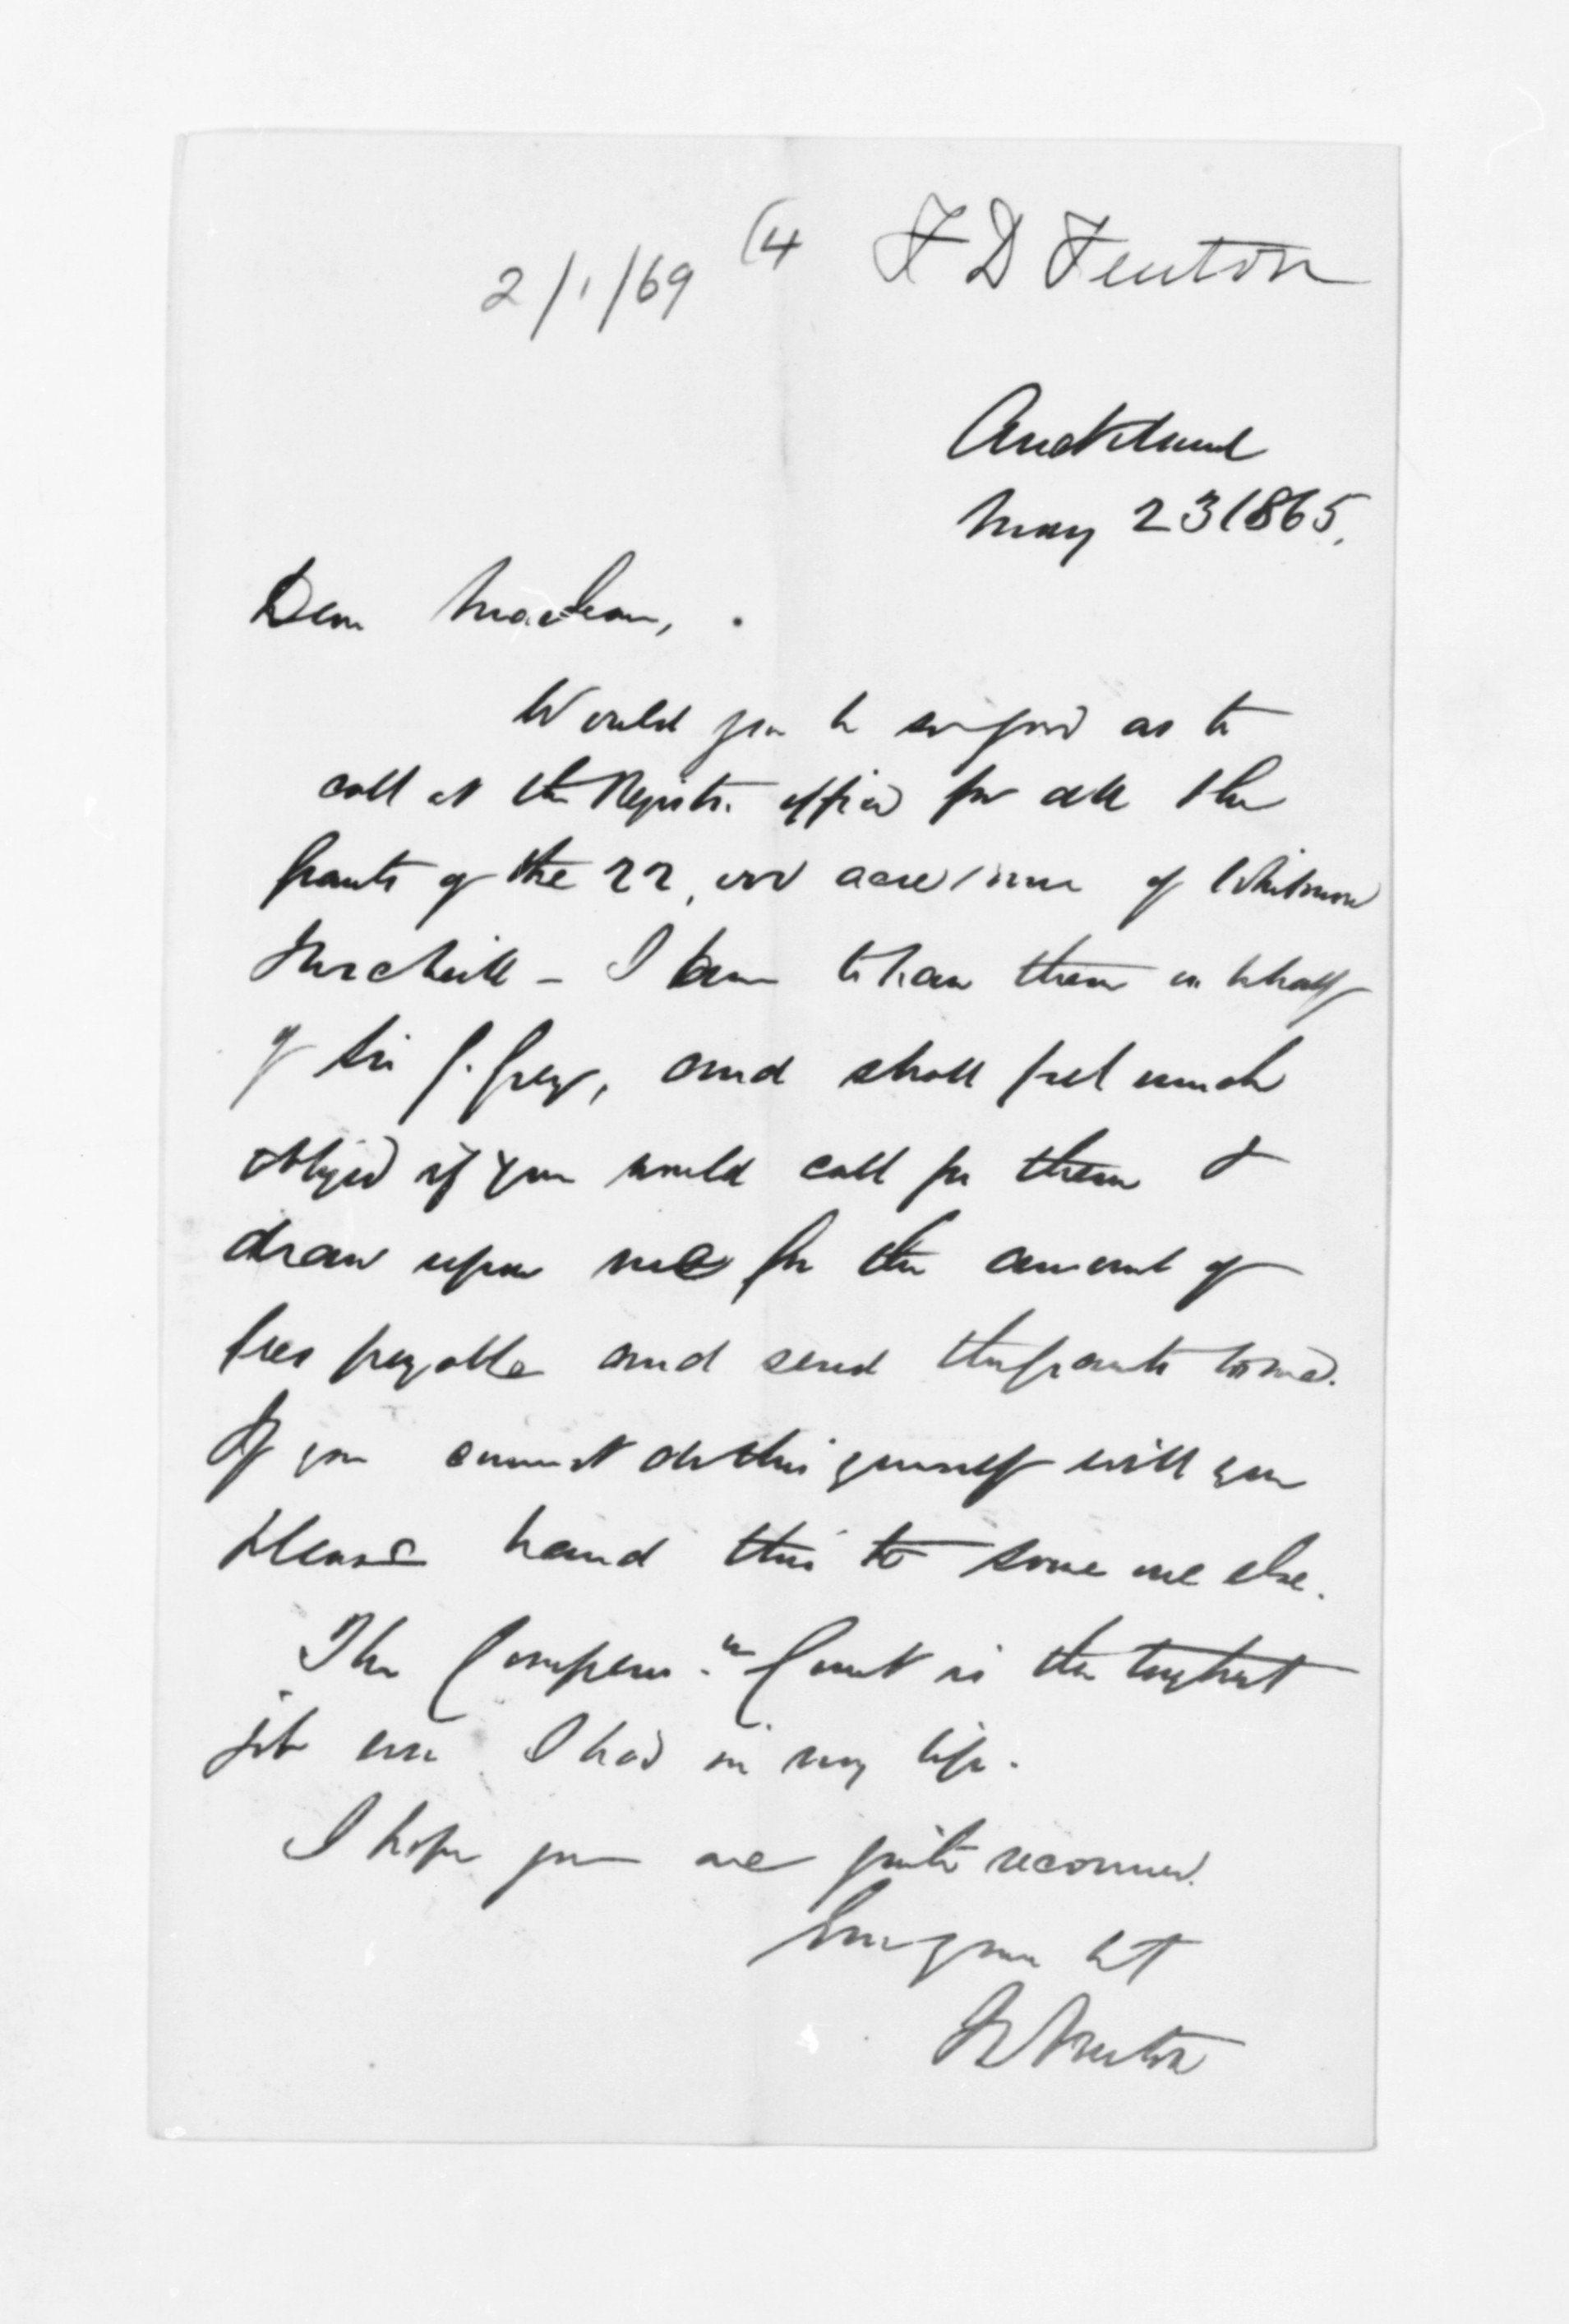 2/1/69 (4 F D Fenton
Auckland
May 23 1865.
Dear Maclean,
Would you be so good as to
call at the Registr. office for all the
grants of the 22,000 acre / of Whitmore
I have to have them on behalf
of Sir G. Grey, and shall feel much
obliged if you would call for them &
draw upon me for the amount of
fees payable and send the grants to me.
If you cannot do this yourself will you
please hand this to some one else.
The Compens.n Court is the toughest
job ever I had in my life.
I hope you are quite recovered.
Ever yours etc
Fenton